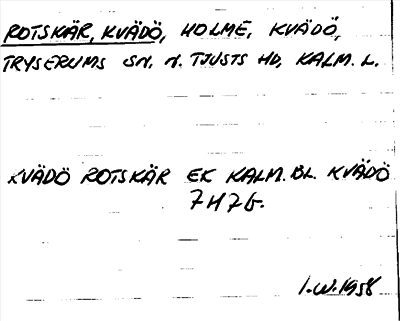 ROTSKÄR, KVÄDÖ, HOLME, KVÄDÖ,
TRYSERUMS SN, N. TJUSTS HD, KALM. L.
KVÄDÖ ROTSKÄR EK KALM. BL. KVÄDÖ
7H7G.
I.W.1958